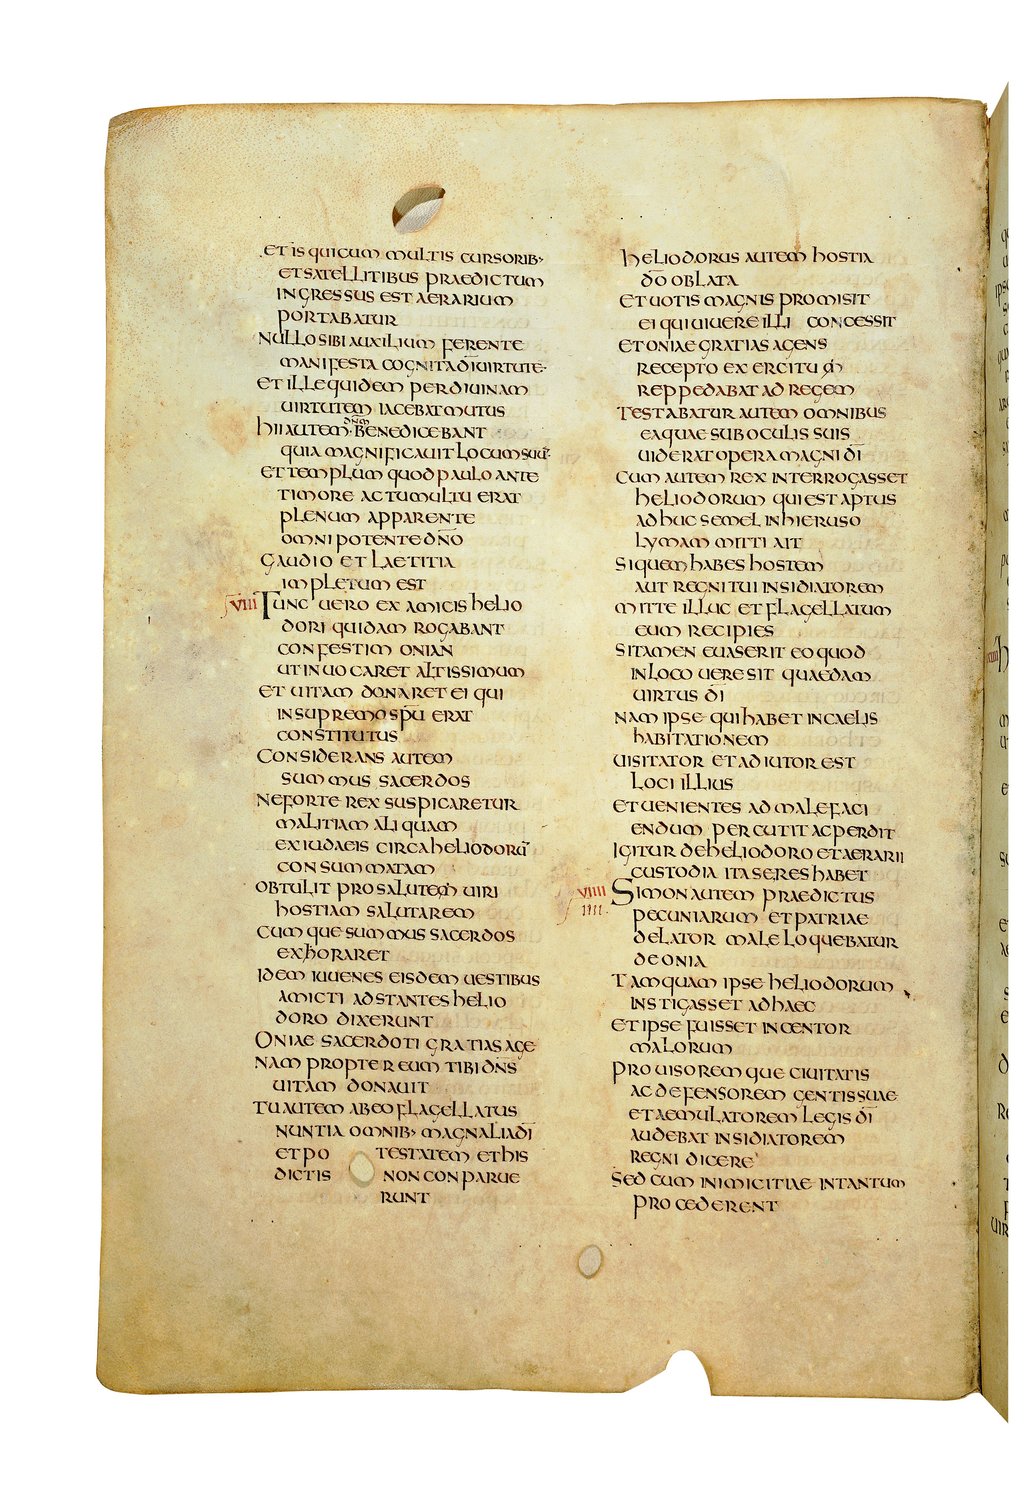 et is qui cum multis cursorib·
et satellitibus praedictum
ingressus est aerarium
portabatur
nullo sibi auxilium ferente
manifesta cognita dī uirtute·
et ille quidem per diuinam
uirtutem iacebat mutus
hii autem dn̄m benedicebant
quia magnificauit locum suū·
et templum quod paulo ante
timore ac tumultu erat
plenum apparente
omnipotente dn̄o
gaudio et laetitia
impletum est
viii Tunc uero ex amicis helio
dori quidam rogabant
confestim onian
ut inuocaret altissimum
et uitam donaret ei qui
in supremo spū erat
constitutus
Considerans autem
summus sacerdos
ne forte rex suspicaretur
malitiam aliquam
ex iudaeis circa heliodorū
consummatam
obtulit pro salutem uiri
hostiam salutarem
Cumque summus sacerdos
exhoraret
idem iuuenes eisdem uestibus
amicti adstantes helio
doro dixerunt
Oniae sacerdoti gratias age
nam propter eum tibi dn̄s
uitam donauit
Tu autem ab eo flagellatus
nuntia omnib· magnalia dī
et po testatem et his
dictis non conparue
runt
heliodorus autem hostia
dō oblata
et uotis magnis promisit
ei qui uiuere illi concessit
et oniae gratias agens
recepto exercitu
reppedabat ad regem
Testabatur autem omnibus
ea quae sub oculis suis
uiderat opera magni dī
Cum autem rex interrogasset
heliodorum qui est aptus
adhuc semel in hieruso
lymam mitti ait
Si quem habes hostem
aut regni tui insidiatorem
mitte illuc et flagellatum
eum recipies
Si tamen euaserit eo quod
in loco uere sit quaedam
uirtus dī
nam ipse qui habet in caelis
habitationem
uisitator et adiutor est
loci illius
et uenientes ad malefaci
endum percutit ac perdit
igitur de heliodoro et aerarii
custodia ita se res habet
viiii Simon autem praedictus
iiii. pecuniarum et patriae
delator male loquebatur
de onia
Tamquam ipse heliodorum
instigasset ad haec
et ipse fuisset incentor
malorum
prouisoremque ciuitatis
ac defensorem gentis suae
et aemulatorem legis dī
audebat insidiatorem
regni dicere
Sed cum inimicitiae in tantum
procederent